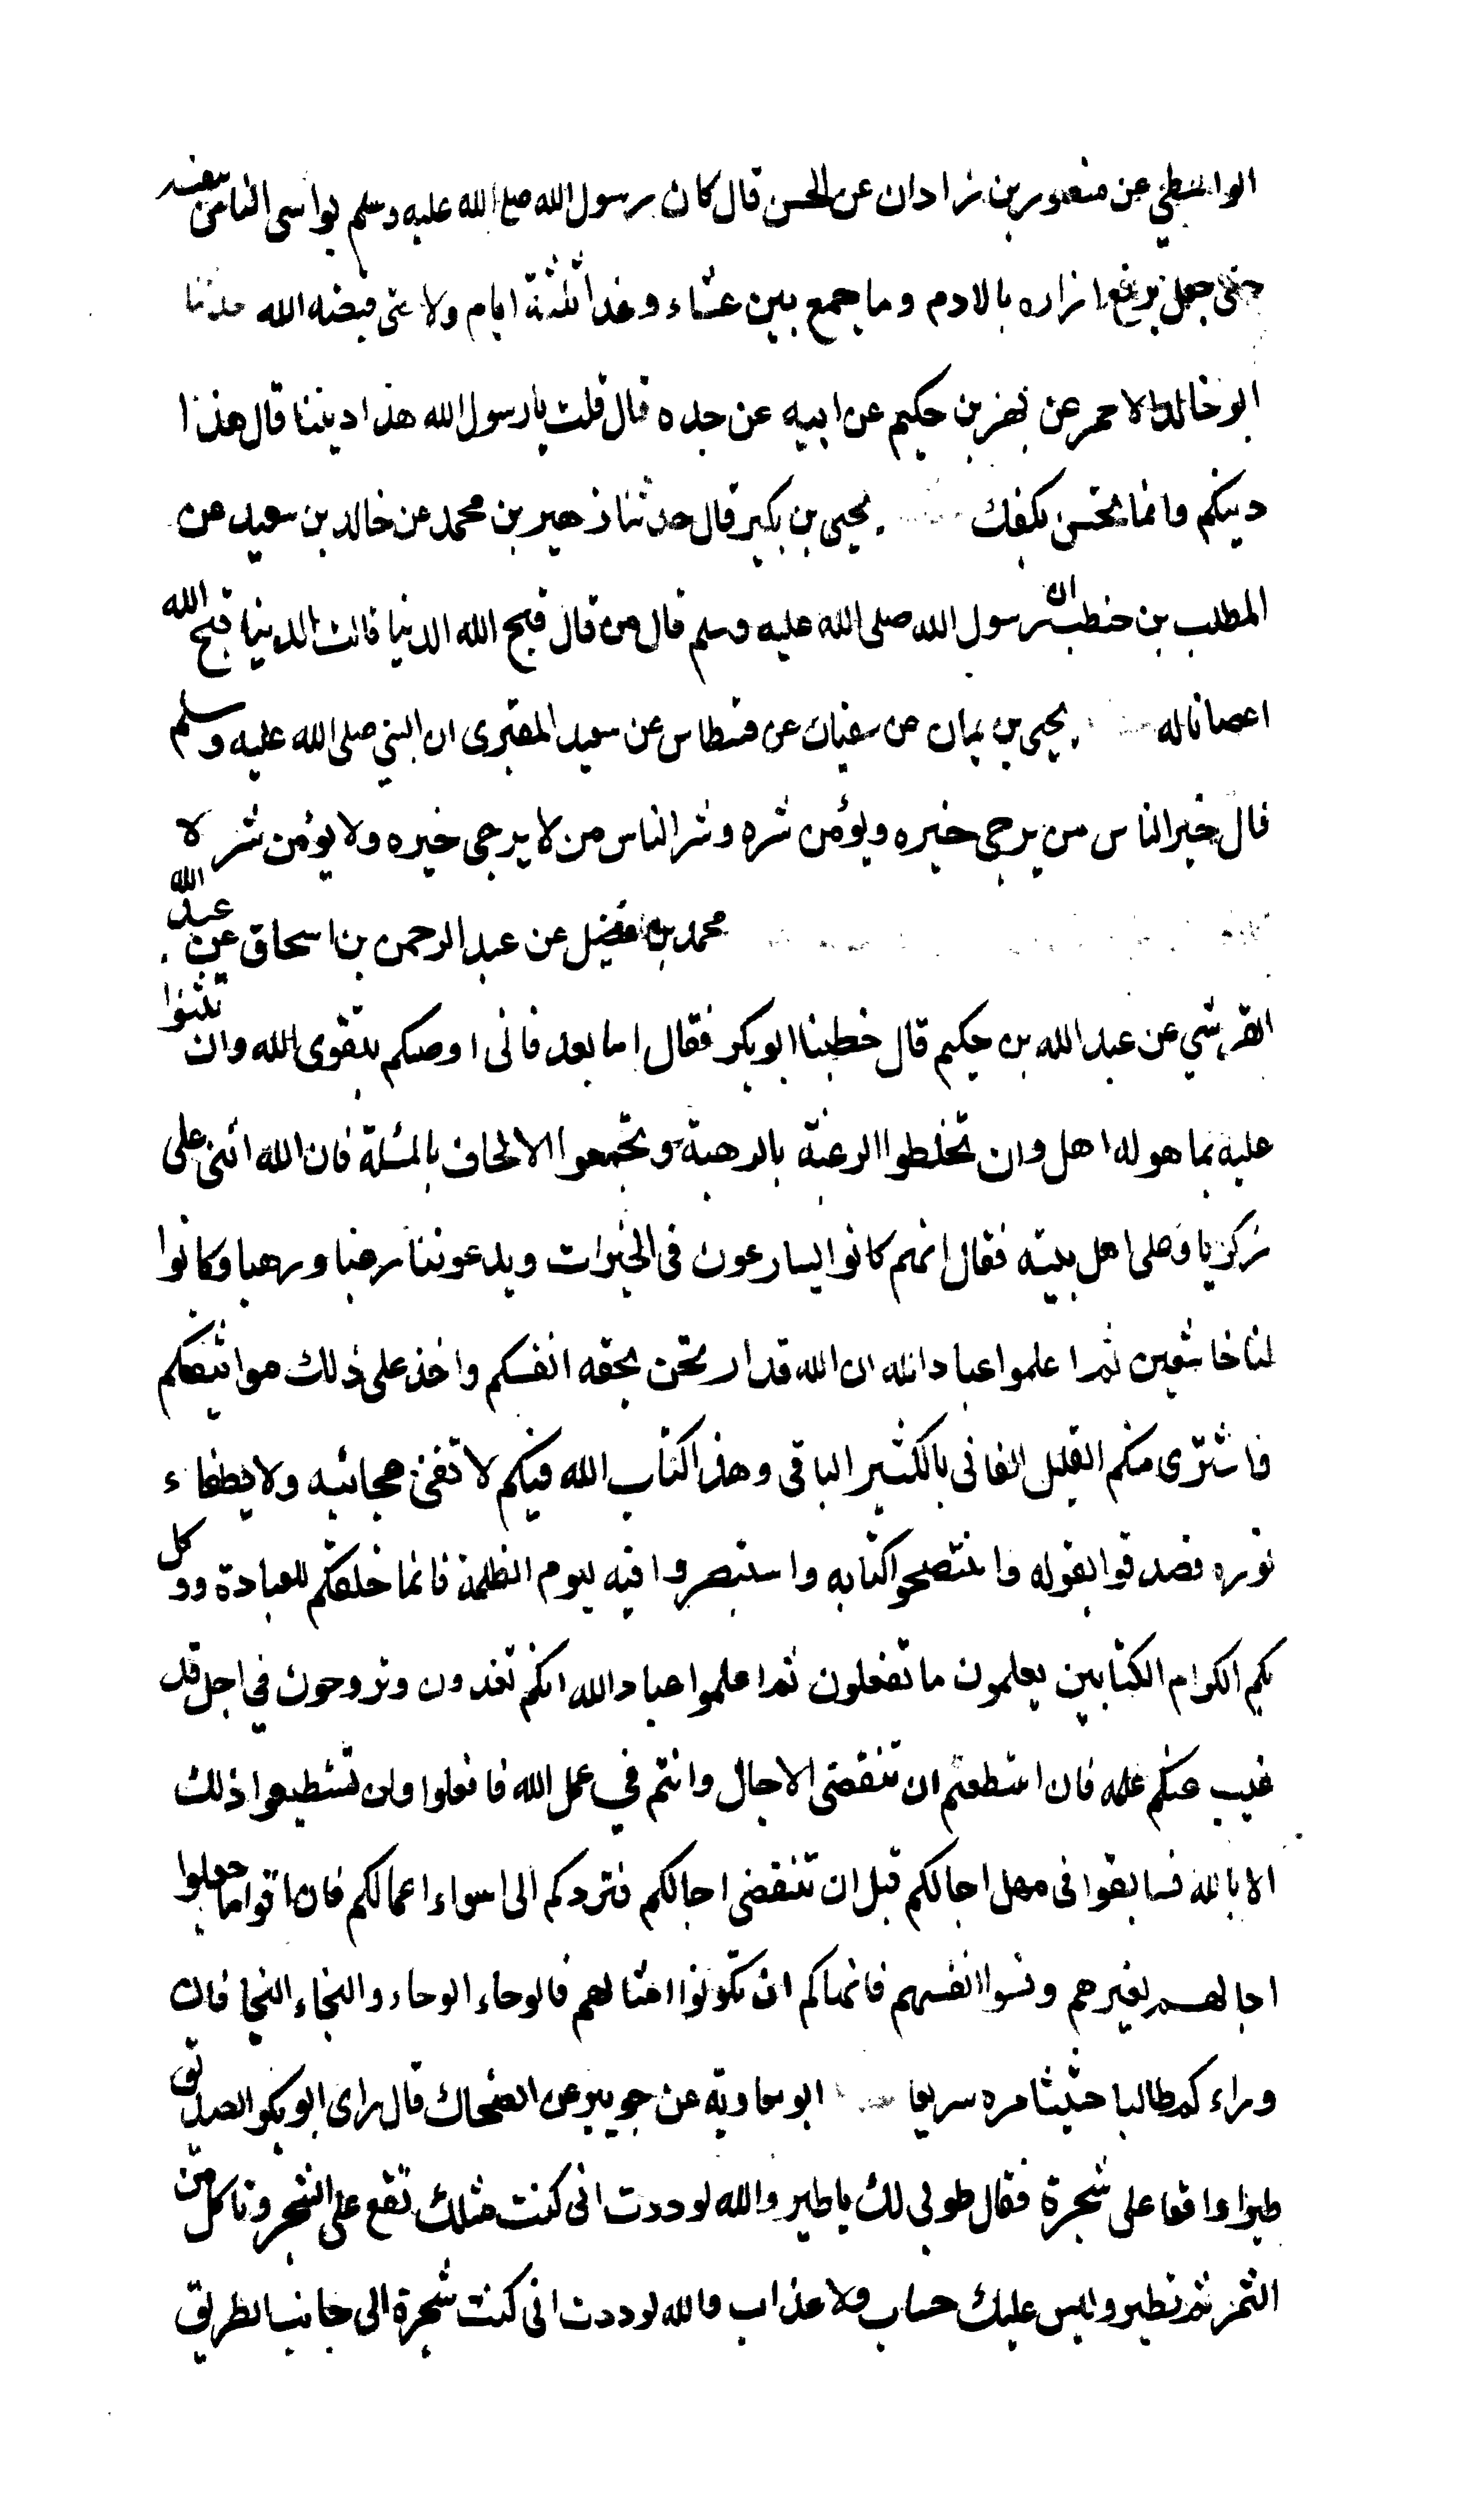 الواسطي عن منصور بن زادان عن الحسن قال كان رسول الله صلى الله عليه وسلم يواسى الناس بنفسه
حتى جعل يرقع ازاره بالادم وما جمع بين عشاء وغداء ثلثة ايام ولاء حتى قبضه الله حدثنا
ابو خالد الاحمر عن بهز بن حكيم عن ابيه عن جده قال قلت يا رسول الله هذا ديننا قال هذا
دينكم واينما تحسن يكفك يحيى بن بكير قال حدثنا زهير بن محمد عن خالد بن سعيد عن
المطلب بن حنطب ان رسول الله صلى الله عليه وسلم قال من قال قبح الله الدنيا قالت الدنيا قبح الله
اعصانا له يحيى بن يمان عن سفيان عن قسطاس عن سعيد المقبرى ان النبي صلى الله عليه وسلم
قال خير الناس من يرجى خيره ويؤمن شره وشر الناس من لا يرجى خيره ولا يؤمن شره
محمد بن فضيل عن عبد الرحمن بن اسحاق عن عبد الله
القرشي عن عبد الله بن حكيم قال خطبنا ابو بكر فقال اما بعد فانى اوصيكم بتقوى الله وان تثنوا
عليه بما هو له اهل وان تخلطوا الرغبة بالرهبة وتجمعوا الالحاف بالمسئلة فان الله اثنى على
زكريا وعلى اهل بيته فقال انهم كانوا يسارعون فى الخيرات ويدعوننا رغبا ورهبا وكانوا
لنا خاشعين ثم اعلموا عباد الله ان الله قد ارتهن بحقه انفسكم واخذ على ذلك مواثيقكم
فاشترى منكم القليل الفانى بالكثير الباقى وهذا كتاب الله فيكم لا تفنى عجائبه ولا يطفاء
نوره فصدقوا بقوله وانتصحوا كتابه واستبصروا فيه ليوم الظلمة فانما خلقكم للعبادة ووكل
بكم الكرام الكتابين يعلمون ما تفعلون ثم اعلموا عباد الله انكم تغدون وتروحون في اجل قد
غيب عنكم علمه فان استطعتم ان تنقضى الاجال وانتم في عمل الله فافعلوا ولن تستطيعوا ذلك
الا بالله فسابقوا فى مهل اجالكم قبل ان تنقضى اجالكم فتردكم الى اسواء اعمالكم فان اقواما جعلوا
اجالهم لغيرهم ونسوا انفسهم فانهاكم ان تكونوا امثالهم فالوحاء الوحاء والنجاء النجا فان
وراءكم طالبا حثيثا مره سريعا ابو معاوية عن جويبر عن الضحاك قال راى ابو بكر الصديق
طيرا واقعا على شجرة فقال طوبى لك يا طير والله لوددت انى كنت مثلك تقع على الشجر وتاكل من
الثمر ثم تطير وليس عليك حساب ولا عذاب والله لوددت انى كنت شجرة الى جانب الطريق